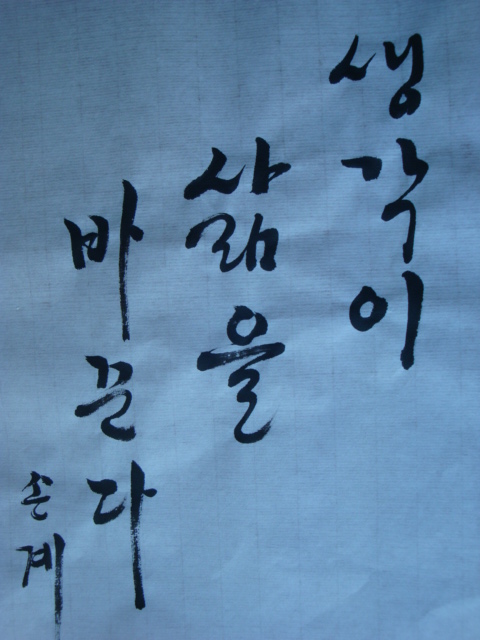 생각이
삶을
바끈다
손계